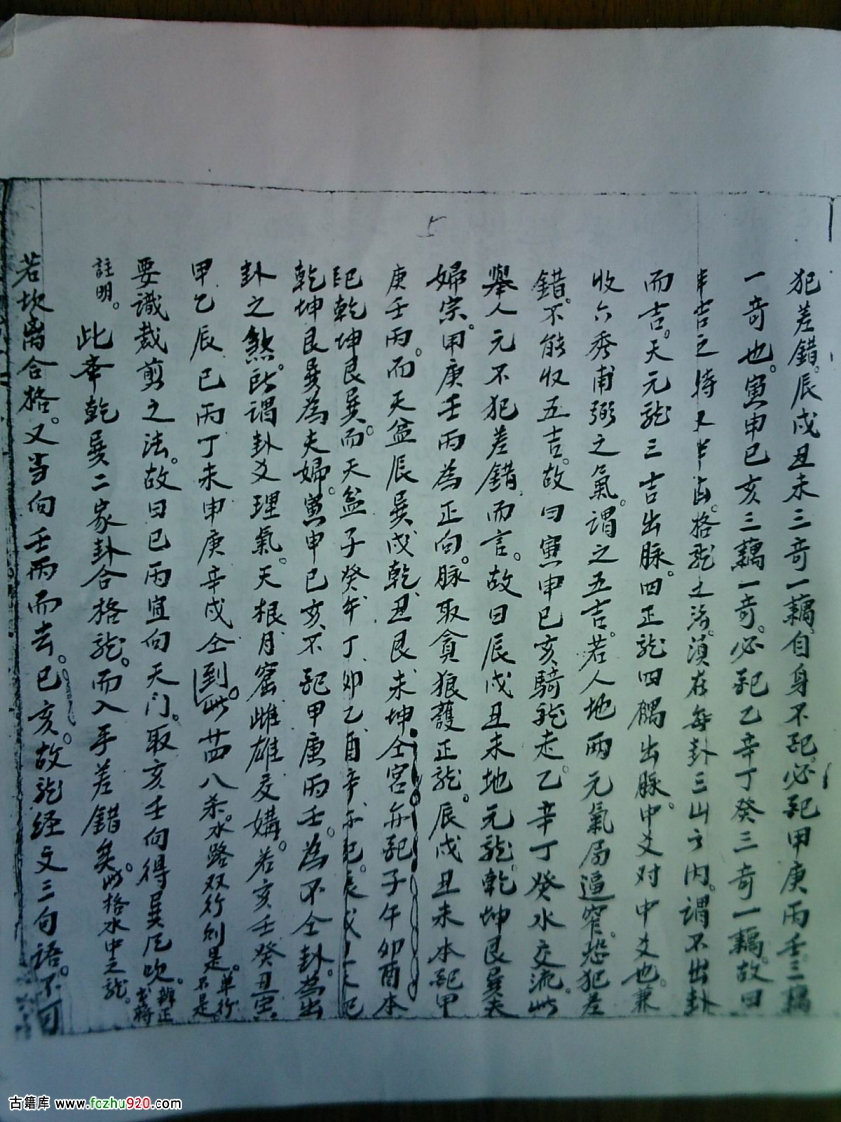 5
犯差錯。辰戌丑未三奇一藕自身不配必配甲庚丙壬三藕
一奇也。寅申巳亥三藕一奇。必配乙辛丁癸三奇一藕。故曰
半吉之特又半凶。格龍之法。須在每卦三山之内。謂不出卦
而吉。天元龍三吉出脉。四正龍四隅出脉。中爻对中爻也。兼
收六秀甫弼之氣。謂之五吉。若人地兩元氣局逼窄。恐犯差
錯。不能收五吉。故曰寅申巳亥騎龍走。乙辛丁癸水交流。此
舉人元不犯差錯而言。故曰辰戌丑未地元龍。乾坤艮巽夫
婦宗。甲庚壬丙為正向。脉取貪狼護正龍。辰戌丑未本配甲
庚壬丙。而天盆辰巽戌乾、丑艮未坤仝宮亦配子午卯酉本
配乾坤艮巽。而天盆子癸午丁、卯乙酉辛亦配。辰戌
乾坤艮巽為夫婦。寅申巳亥不配甲庚丙壬。為不仝卦為出
卦之煞。所謂卦爻理氣。天根月窟雌雄交媾。若亥壬癸丑寅
甲乙辰巳丙丁未申庚辛戌仝到此廿四八杀。水路双行则是。单行不是。
要識裁剪之法。故曰巳丙宜向天门。取亥壬向得巽風吹。辨正
註明。此奉乾巽二家卦合格龍。而入手差錯矣。此格水中之龍。
若坎离合格。又当向壬丙而去。巳亥。故龍経文三句語。不可
古籍库 www.fczhu920.com